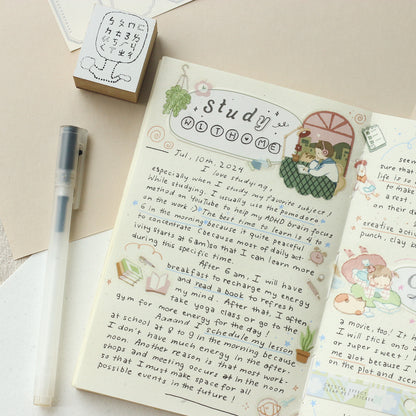 study
WITH ME
Jul, 10th, 2024
I love studying,
especially when I study my favorite subject!
While studying, I usually use the pomodoro
method on YouTube to help my ADHD brain focus
on the work :) The best time to learn is 4 to
6 in the morning because it is quite peaceful
to concentrate (because most of daily act-
ivity starts at 6am) so that I can learn more
during the specific time.
After 6 am, I will have
breakfast to recharge my energy
and read a book to refresh
my mind. After that, I often
take yoga class or go to the
gym for more energy for the day!
I schedule my lessons
at school at 8 to 9 in the morning because
I don't have much energy in the after-
noon. Another reason is that more work-
shops and meeting occurs at the noon
so that I must make space for all
possible events in the future!
seem
sure that
life is
to make
creative
punch, clay
a movie, too! It
I will stick onto
or super sweet!
me alot because I
on the plot and